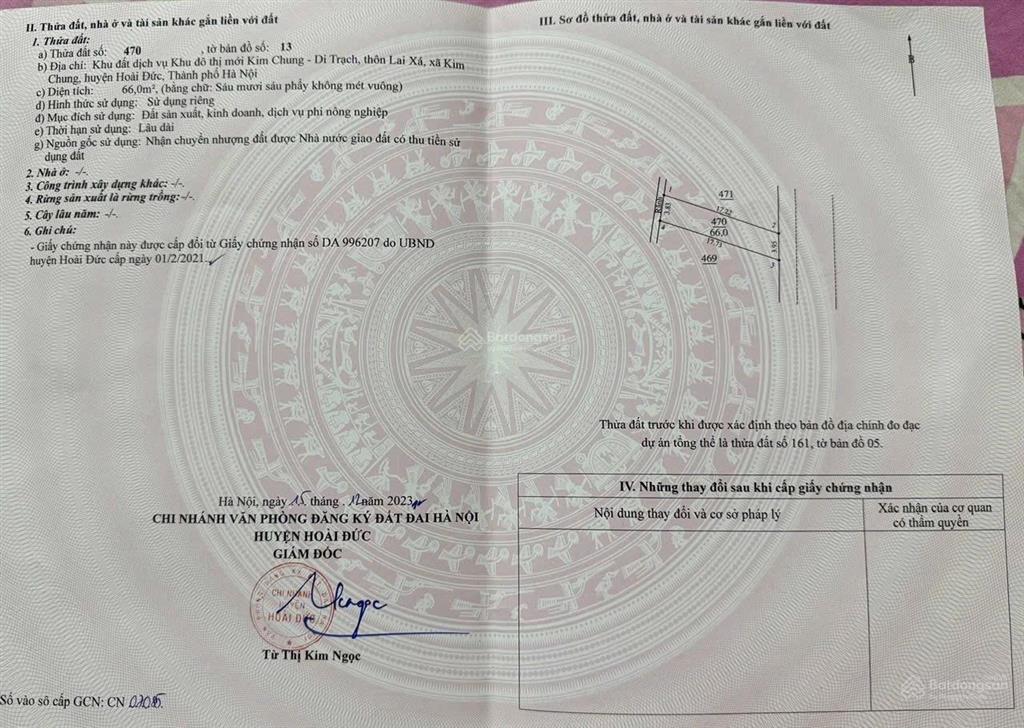 II. Thửa đất, nhà ở và tài sản khác gắn liền với đất
1. Thửa đất:
a) Thửa đất số: 470 , tờ bản đồ số: 13
b) Địa chỉ: Khu đất dịch vụ Khu đô thị mới Kim Chung - Di Trạch, thôn Lai Xá, xã Kim
Chung, huyện Hoài Đức, Thành phố Hà Nội
c) Diện tích: 66,0m², (bằng chữ: Sáu mươi sáu phẩy không mét vuông)
d) Hình thức sử dụng: Sử dụng riêng
đ) Mục đích sử dụng: Đất sản xuất, kinh doanh, dịch vụ phi nông nghiệp
e) Thời hạn sử dụng: Lâu dài
g) Nguồn gốc sử dụng: Nhận chuyển nhượng đất được Nhà nước giao đất có thu tiền sử
dụng đất
2. Nhà ở: -/-.
3. Công trình xây dựng khác: -/-.
4. Rừng sản xuất là rừng trồng: -/-.
5. Cây lâu năm: -/-.
6. Ghi chú:
- Giấy chứng nhận này được cấp đổi từ Giấy chứng nhận số DA 996207 do UBND
huyện Hoài Đức cấp ngày 01/2/2021.
Hà Nội, ngày 15 tháng 12 năm 2023
CHI NHÁNH VĂN PHÒNG ĐĂNG KÝ ĐẤT ĐAI HÀ NỘI
HUYỆN HOÀI ĐỨC
GIÁM ĐỐC
CHI NHÁNH
HUYỆN
HOÀI ĐỨC
Từ Thị Kim Ngọc
Số vào sổ cấp GCN: CN
III. Sơ đồ thửa đất, nhà ở và tài sản khác gắn liền với đất
B
471
1
17.32
2
3.83
470
66,0
3.95
17.73
3
469
Thửa đất trước khi được xác định theo bản đồ địa chính đo đạc
dự án tổng thể là thửa đất số 161, tờ bản đồ 05.
IV. Những thay đổi sau khi cấp giấy chứng nhận
Nội dung thay đổi và cơ sở pháp lý
Xác nhận của cơ quan
có thẩm quyền
Batdongsan
Batdongsan